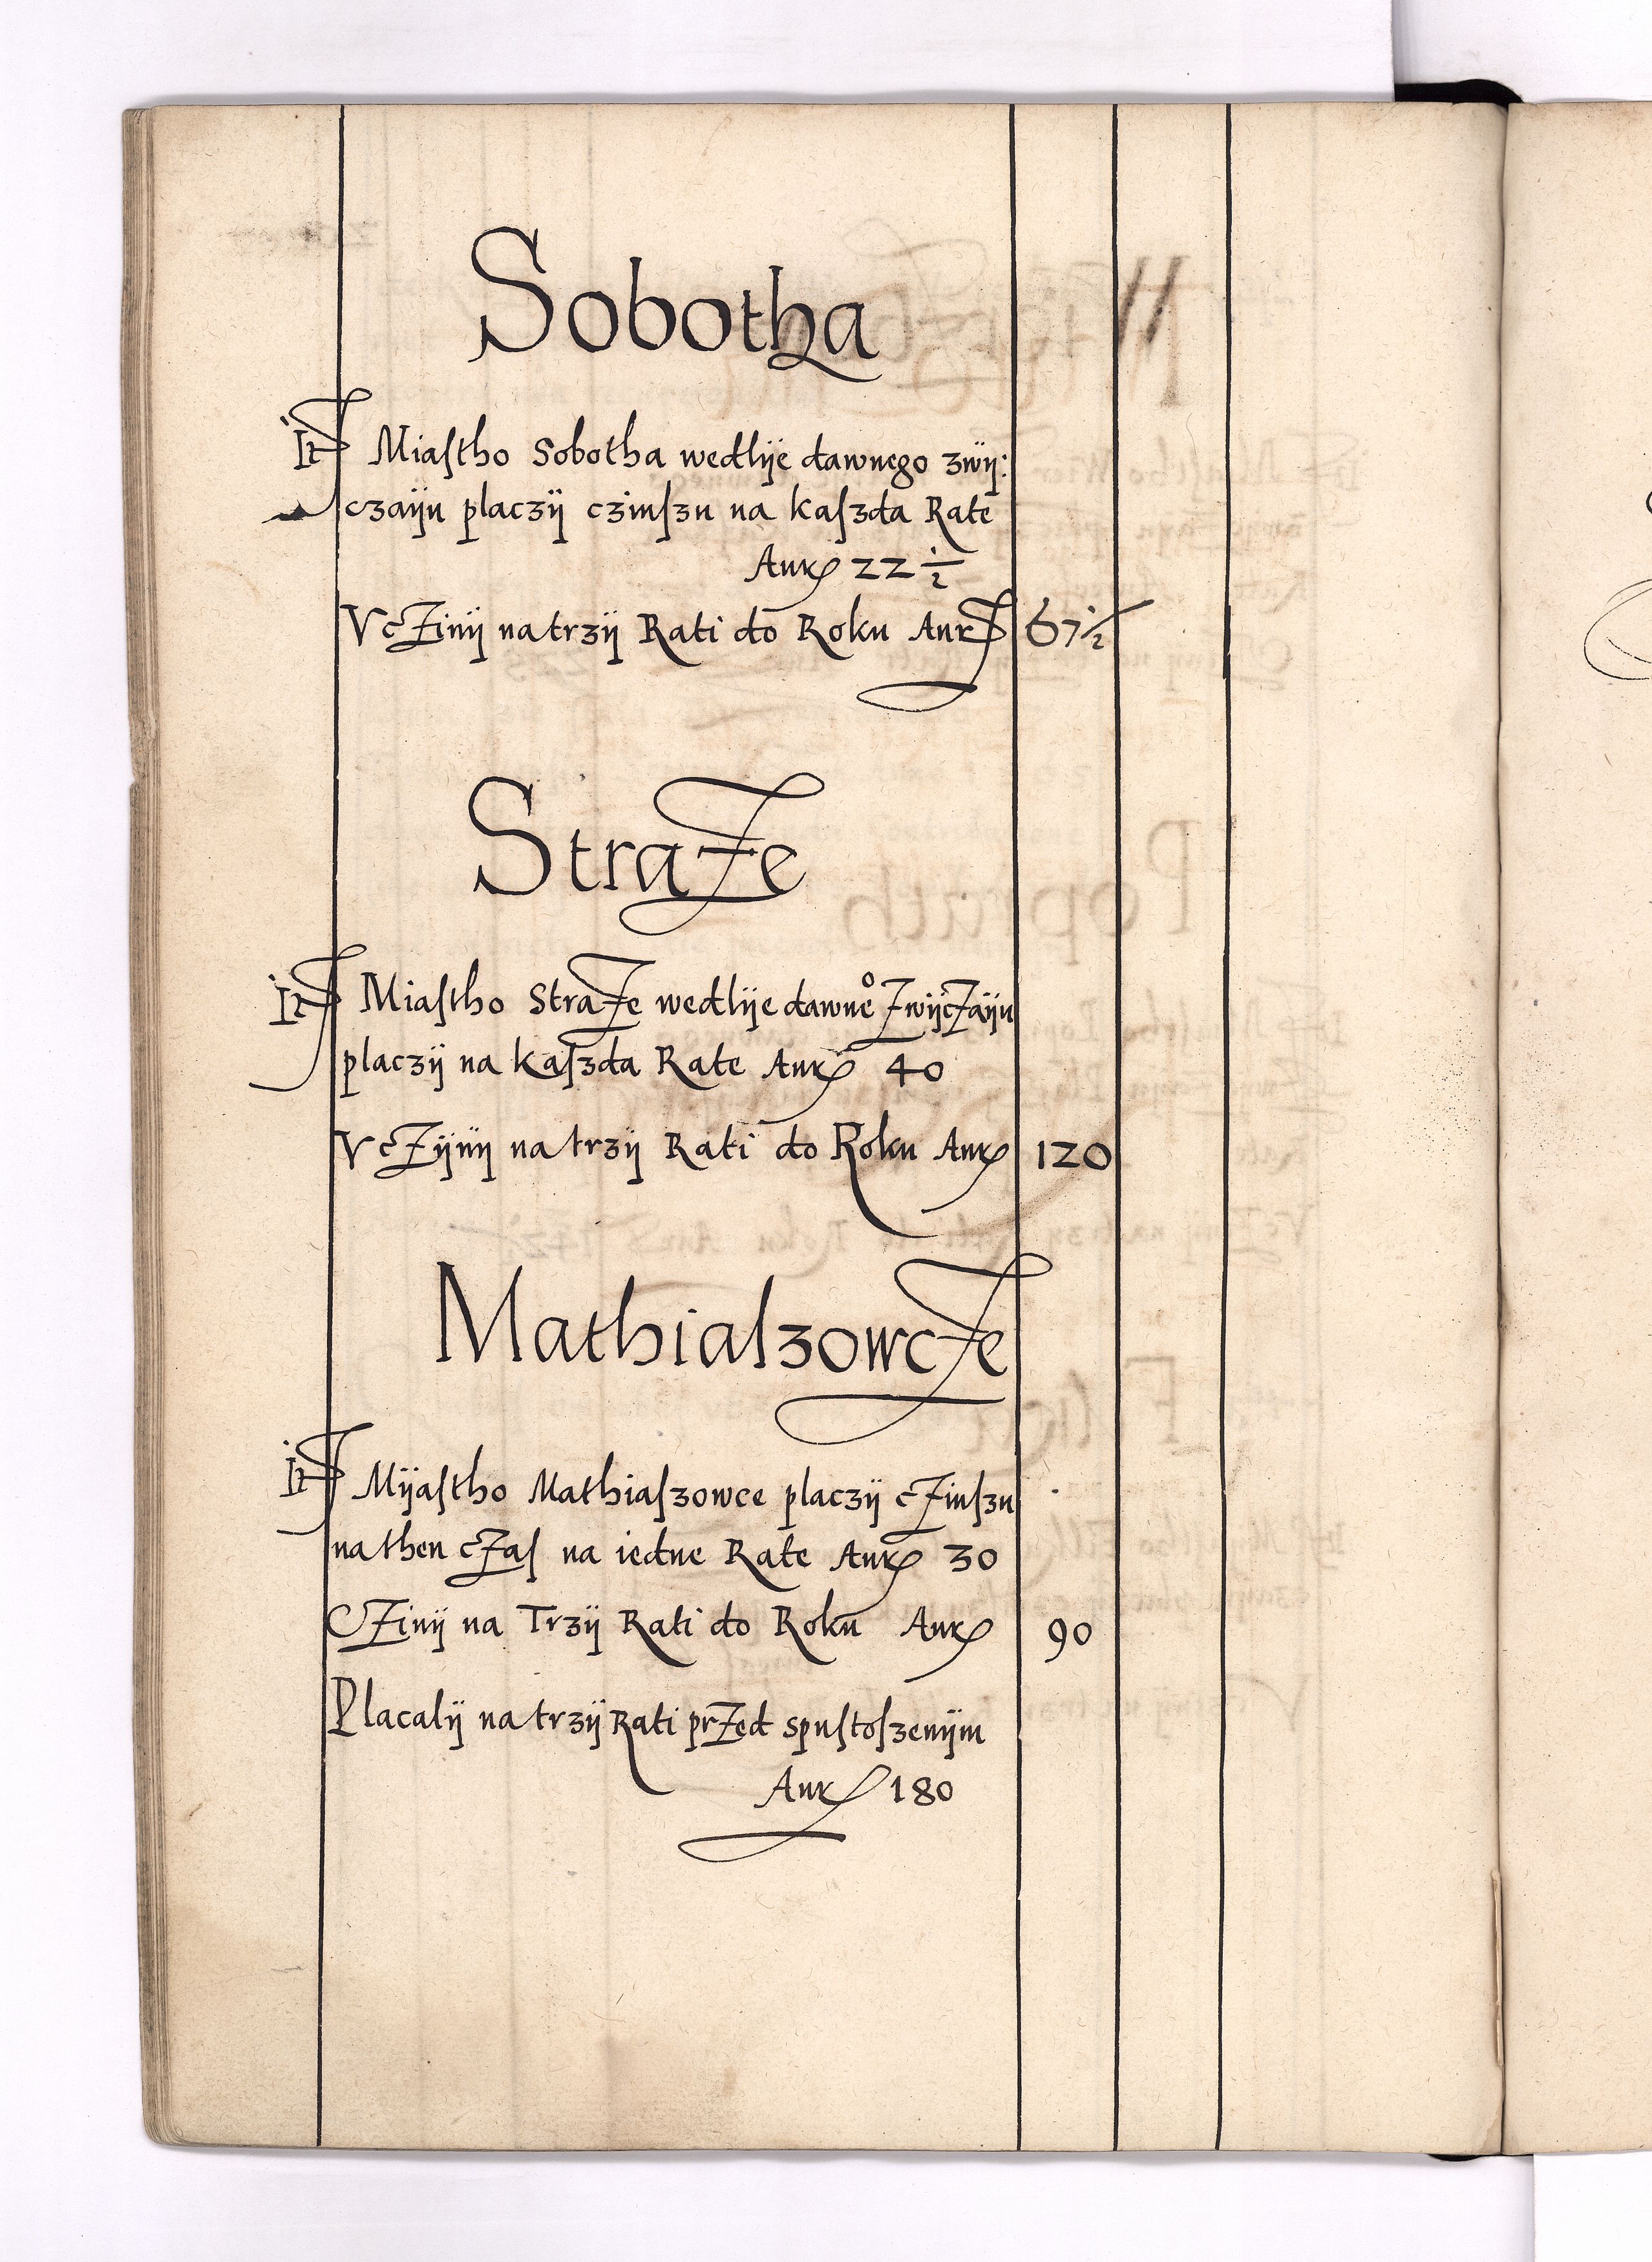 Sobotha
It Miastho Sobotha wedlÿe dawnego zwÿ:
czaÿu placzÿ czinszu na kaszda Rate
Aur 22 1/2
Vczinÿ na trzÿ Rati do Roku Aur 67 1/2
Straze
It Miastho Straze wedlÿe dawneº zwÿczaÿu
placzÿ na kaszda Rate Aur 40
Vczÿnÿ na trzÿ Rati do Roku Aur 120
Mathiaszowcze
It Mÿastho Mathiaszowce placzÿ czinszu
na then czas na iedne Rate Aur 30
Czinÿ na Trzÿ Rati do Roku Aur 90
Placalÿ na trzÿ Rati przed spustoszenÿm
Aur 180